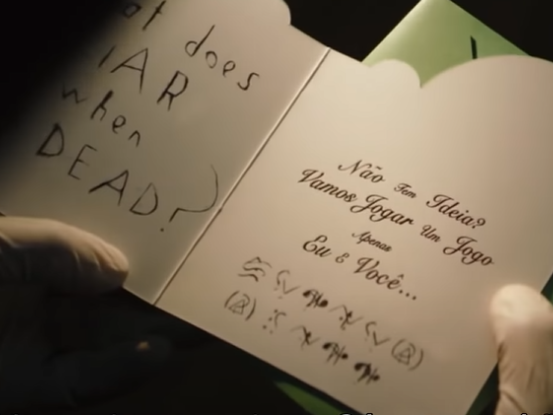 does
when
DEAD?
Não Tem Ideia?
Vamos Jogar Um Jogo
Apenas
Eu E Você...